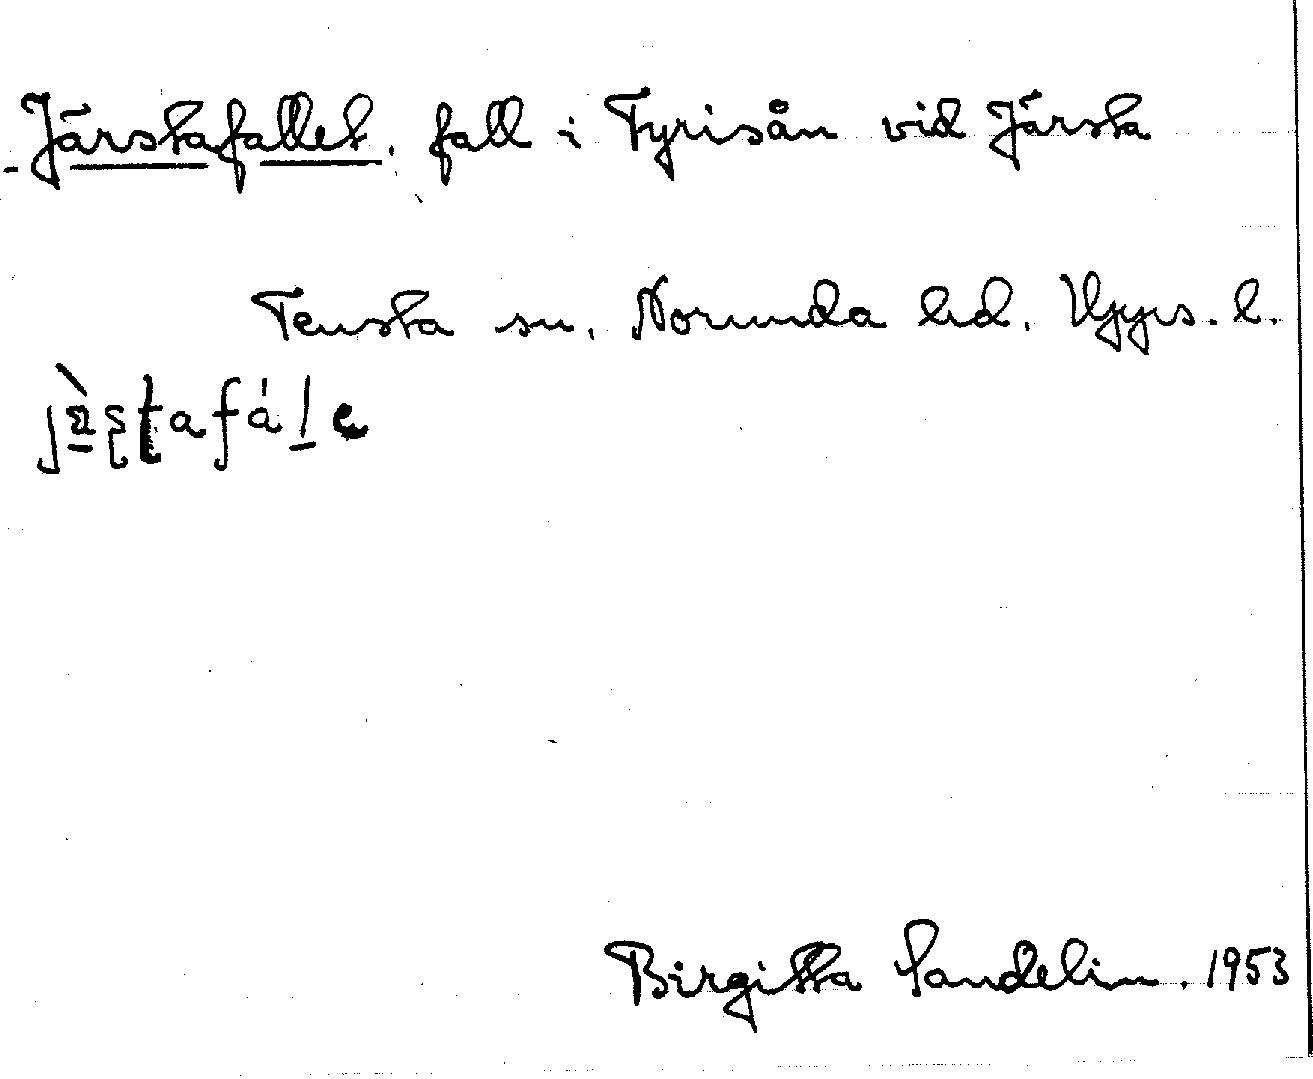 Järstafallet, fall i Fyrisån vid Järsta
Tensta sn, Norunda hd, Upps. l.
Birgitta Sandelin, 1953